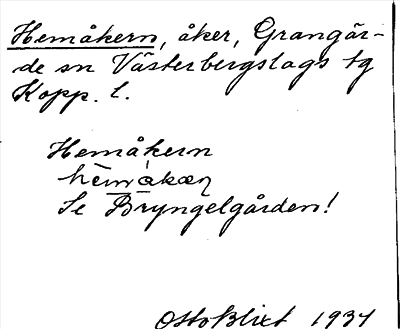 Hemåkern, åker, Grangär-
de sn Västerbergslags tg
Kopp. l.
Hemåkern
Se Bryngelgården!
Otto Blixt 1934